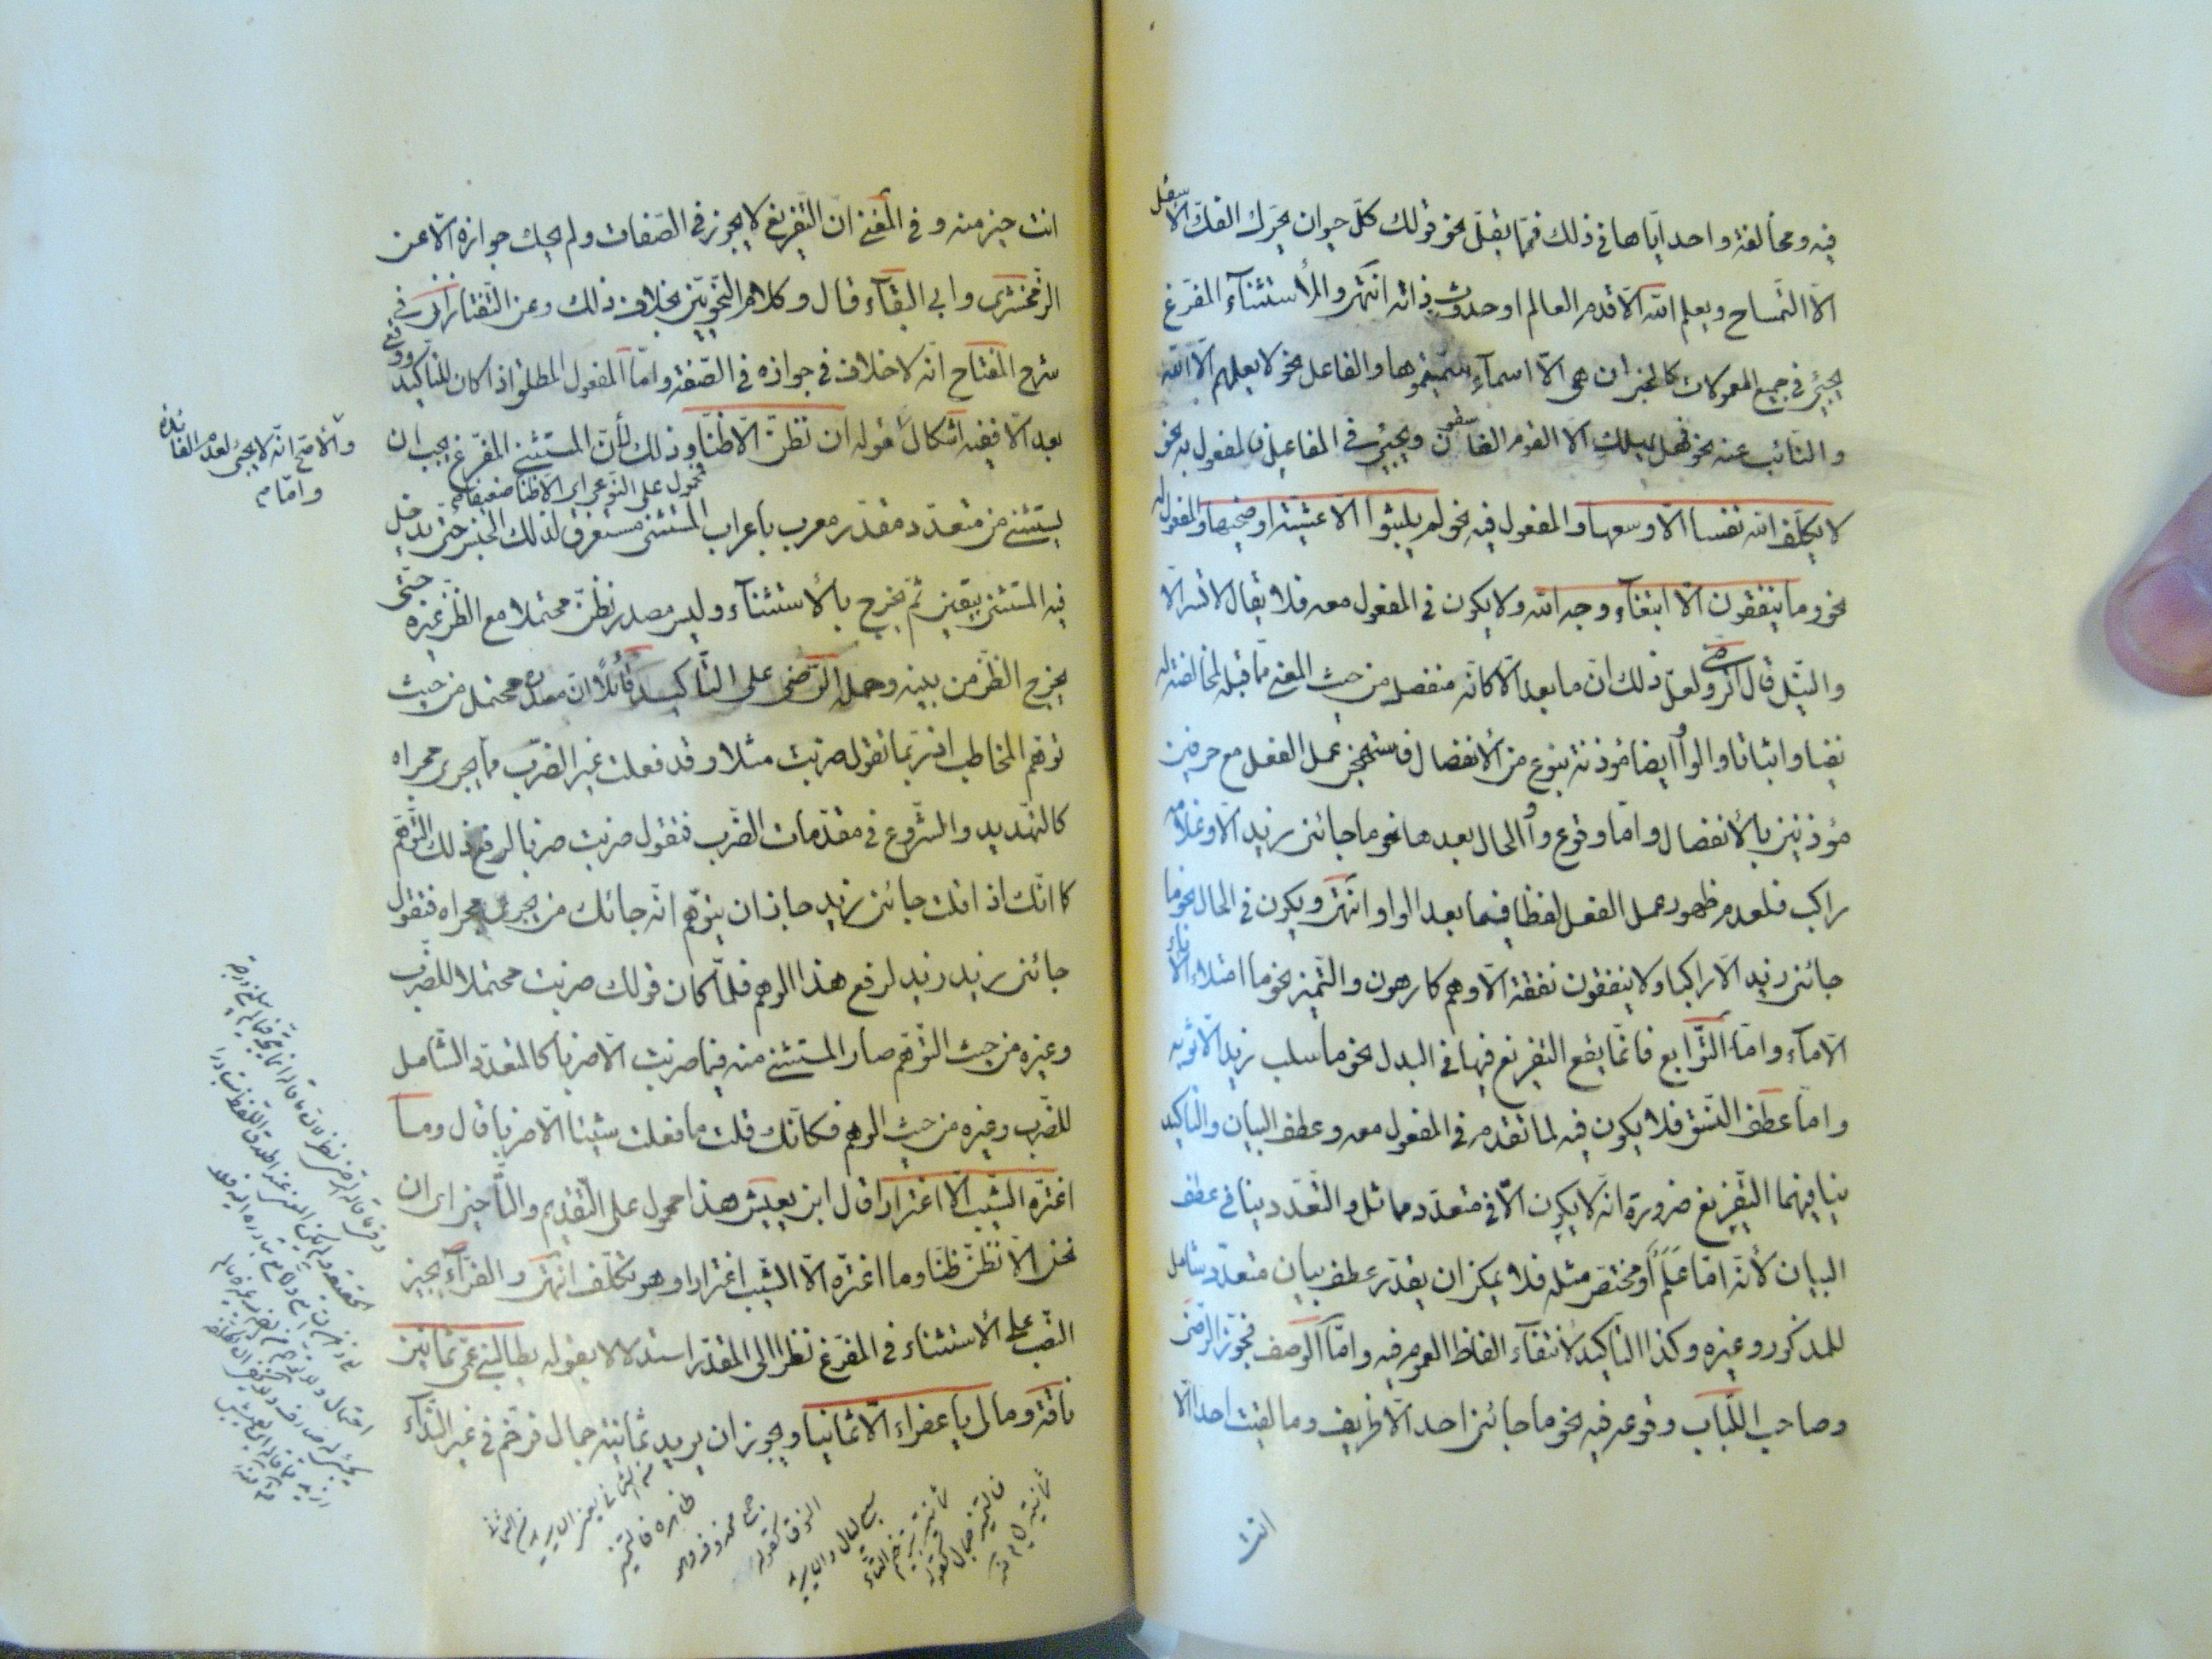 فيه ومخالفة واحد اياها في ذلك فمما يقل نحو قولك كل حيوان يحرك الفك الاسفل
الا التمساح ويعلم الله الا قدم العالم او حدوث ذاته انتهى والاستثناء المفرغ
يجيئ في جميع المعمولات كالخبر ان هي الا اسماء سميتموها والفاعل نحو لا يعلمهم الا الله
والنائب عنه نحو فهل يهلك الا القوم الفاسقون ويجيئ في المفاعيل فالمفعول به نحو
لا يكلف الله نفسا الا وسعها والمفعول فيه نحو لم يلبثوا الا عشية او ضحيها والمفعول له
نحو وما ينفقون الا ابتغاء وجه الله ولا يكون في المفعول معه فلا يقال لا تسر الا
والنيل قال الرضي ولعل ذلك ان ما بعد الا كانه منفصل من حيث المعنى مما قبله لمخالفته له
نفيا واثباتا والواو ايضا مؤذنة بنوع من الانفصال فاستهجن عمل الفعل مع حرفين
مؤذنين بالانفصال واما وقوع واو الحال بعدها نحو ما جائني زيد الا وغلامه
راكب فلعدم ظهور عمل الفعل لفظا فيما بعد الواو انتهى ويكون في الحال نحو ما
جائني زيد الا راكبا ولا ينفقون نفقة الا وهم كارهون والتميز نحو ما امتلاء الاناء
الا ماء واما التوابع فانما يقع التفريغ فيها في البدل نحو ما سلب زيد الا ثوبه
واما عطف النسق فلا يكون فيه لما تقدم في المفعول معه وعطف البيان والتاكيد
ينافيهما التفريغ ضرورة انه لا يكون الا في متعدد مماثل والتعدد ينافي عطف
البيان لانه اما علم او مختص مثله فلا يمكن ان يقدر عطف بيان متعدد شامل
للمذكور وغيره وكذا التاكيد لانتفاء الفاظ العموم فيه واما الوصف فجوز الرضي
وصاحب اللباب وقوعه فيه نحو ما جائني احد الا ظريف وما لقيت احدا الا
انت
انت خير منه وفي المغني ان التفريغ لا يجوز في الصفات ولم يحك جوازه الا عن
الزمخشري وابي البقاء قال وكلام النحويين بخلاف ذلك وعن التفتازاني في
شرح المفتاح انه لا خلاف في جوازه في الصفة واما المفعول المطلق اذا كان للتاكيد ووقع
بعد الا ففيه اشكال كقوله ان نظن الا ظنا وذلك لان المستثنى المفرغ يجب ان
فمحمول على النوعي اي الا ظنا ضعيفا
يستثنى من متعدد مقدر معرب باعراب المستثنى مستغرق لذلك الجنس حتى يدخل
فيه المستثنى بيقين ثم يخرج بالاستثناء وليس مصدر نظن محتملا مع الظن غيره حتى
يخرج الظن من بينه وحمله الرضي على التاكيد قائلا ان محتمل من حيث
توهم المخاطب اذ ربما تقول ضربت مثلا وقد فعلت غير الضرب مما يجري مجراه
كالتهديد والشروع في مقدمات الضرب فتقول ضربت ضربا لرفع ذلك التوهم
كما انك اذا قلت جائني زيد جاز ان يتوهم انه جائك من يجري مجراه فتقول
جائني زيد زيد لرفع هذا الوهم فلما كان قولك ضربت محتملا للضرب
وغيره من حيث التوهم صار المستثنى منه فيما ضربت الا ضربا كالمتعدد الشامل
للضرب وغيره من حيث الوهم فكانك قلت ما فعلت شيئا الا ضربا قال وما
اغتره الشيب الا اغترارا قال ابن يعيش هذا محمول على التقديم والتاخير اي ان
نحن الا نظن ظنا وما اغتره الا الشيب اغترارا وهو تكلف انتهى والفراء يجيز
النصب على الاستثناء في المفرغ نظرا الى المقدر استدلالا بقوله يطالبني عمي ثمانين
ناقة وما لي يا عفراء الا ثمانيا ويجوز ان يريد ثمانية جمال فرخم في غير النداء
والاصح انه لا يجئ لعدم الفائدة
واما م